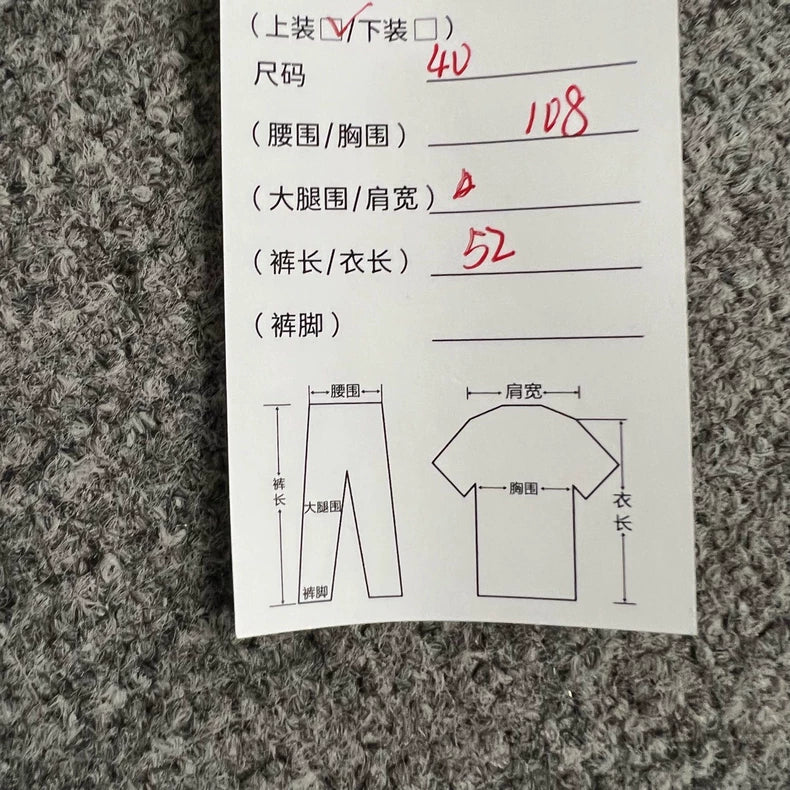 （上装☑/下装□）
尺码 40
（腰围/胸围） 108
（大腿围/肩宽）
（裤长/衣长） 52
（裤脚）
腰围
肩宽
裤长
大腿围
胸围
衣长
裤脚